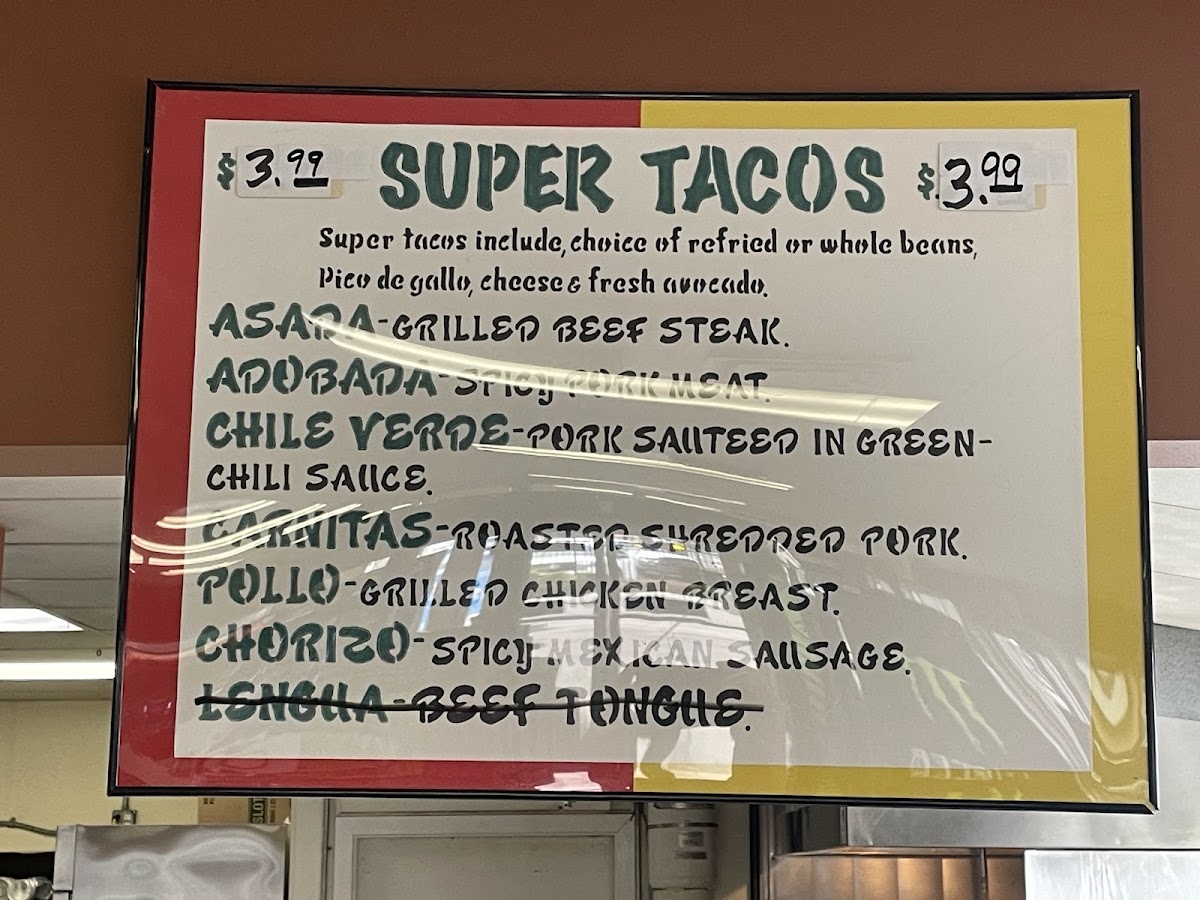 $3.99 SUPER TACOS $3.99
Super tacos include, choice of refried or whole beans,
Pico de gallo, cheese & fresh avocado.
ASADA-GRILLED BEEF STEAK.
ADOBADA-SPICY PORK MEAT.
CHILE VERDE-PORK SAUTEED IN GREEN-
CHILI SAUCE.
CARNITAS-ROASTED SHREDDED PORK.
POLLO-GRILLED CHICKEN BREAST.
CHORIZO-SPICY MEXICAN SAUSAGE.
LENGUA-BEEF TONGUE.